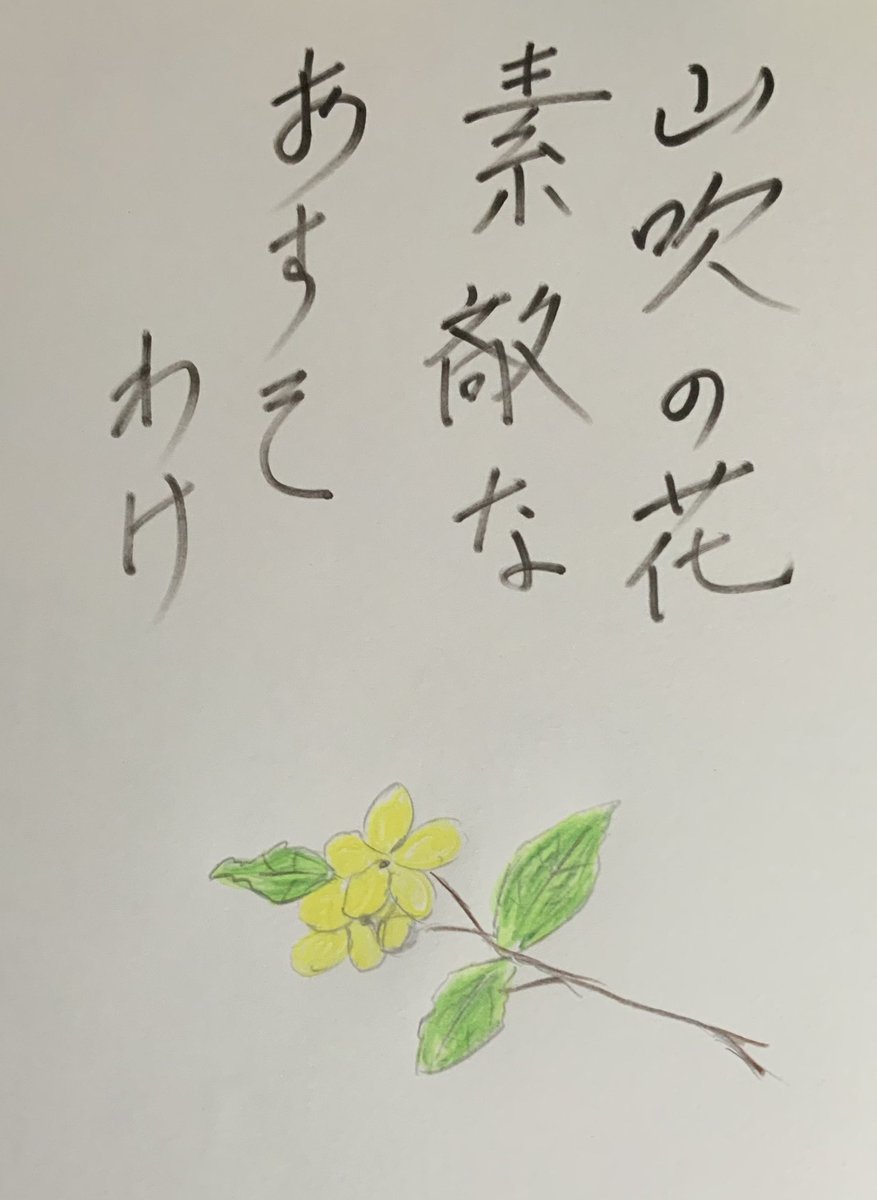 山吹の花
素敵な
おすそ
わけ